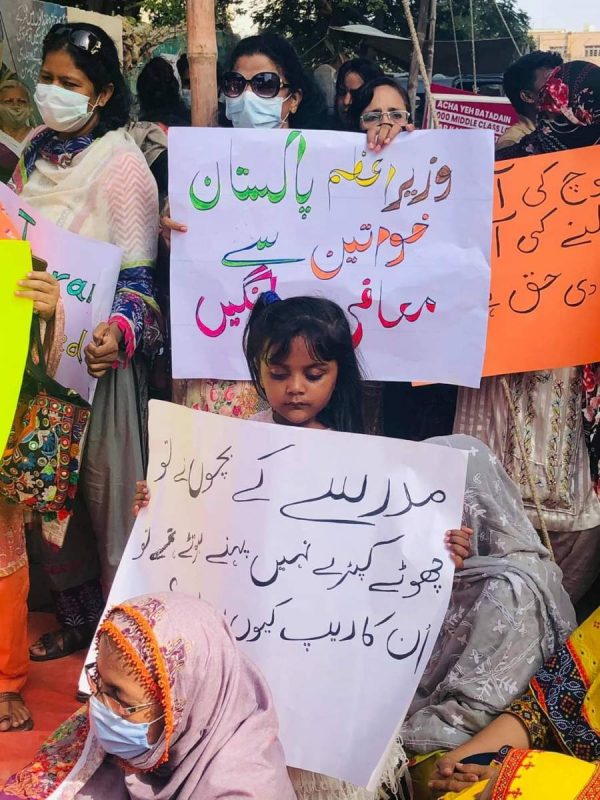 وزیراعظم پاکستان
خواتین سے
معافی مانگیں
ACHA YEH BATADAIN
000 MIDDLE CLASS
چ کی آ
لنے کی آ
دی حق ہ
مدرسے کے بچوں نے تو
چھوٹے کپڑے نہیں پہنے ہوتے تھے تو
اُن کا ریپ کیوں